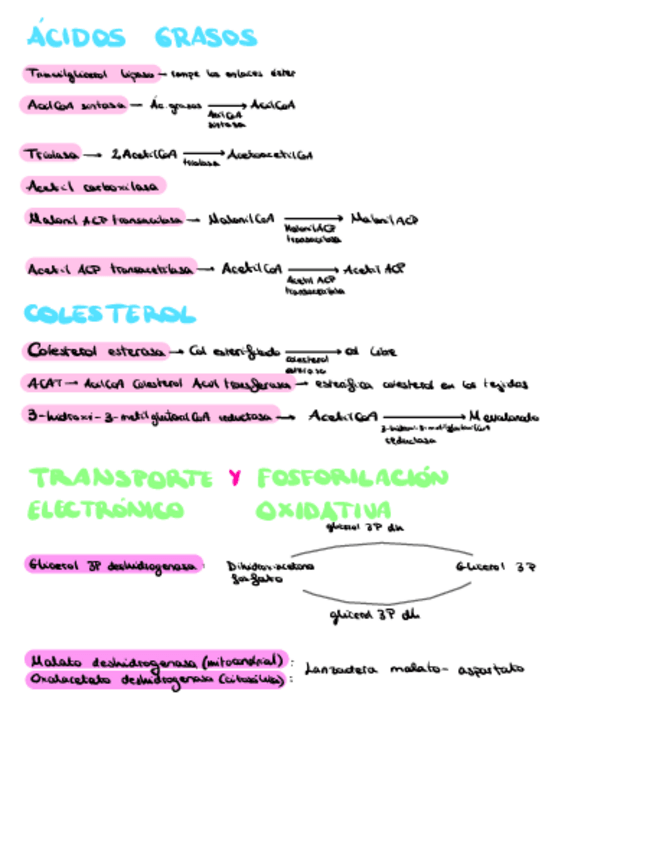 ÁCIDOS GRASOS
Triacilglicerol lipasa – rompe los enlaces éster
AcilCoA sintasa – Ác. grasos → AcilCoA
AcilCoA
sintasa
Tiolasa → 2 AcetilCoA → AcetoacetilCoA
tiolasa
Acetil carboxilasa
Malonil ACP transacilasa – MalonilCoA → Malonil ACP
Malonil ACP
transacilasa
Acetil ACP transacetilasa → AcetilCoA → Acetil ACP
Acetil ACP
COLESTEROL
Colesterol esterasa → Col esterificado → col libre
colesterol
esterasa
ACAT → AcilCoA Colesterol Acil transferasa → esterifica colesterol en los tejidos
3-hidroxi-3-metilglutarilCoA reductasa → AcetilCoA → Mevalonato
3-hidroxi-3-metilglutarilCoA
reductasa
TRANSPORTE Y FOSFORILACIÓN
ELECTRÓNICO OXIDATIVA
glicerol 3P dh
Glicerol 3P deshidrogenasa: Dihidroxiacetona Glicerol 3P
fosfato
glicerol 3P dh
Malato deshidrogenasa (mitocondrial): Lanzadera malato-aspartato
Oxalacetato deshidrogenasa (citosólica):